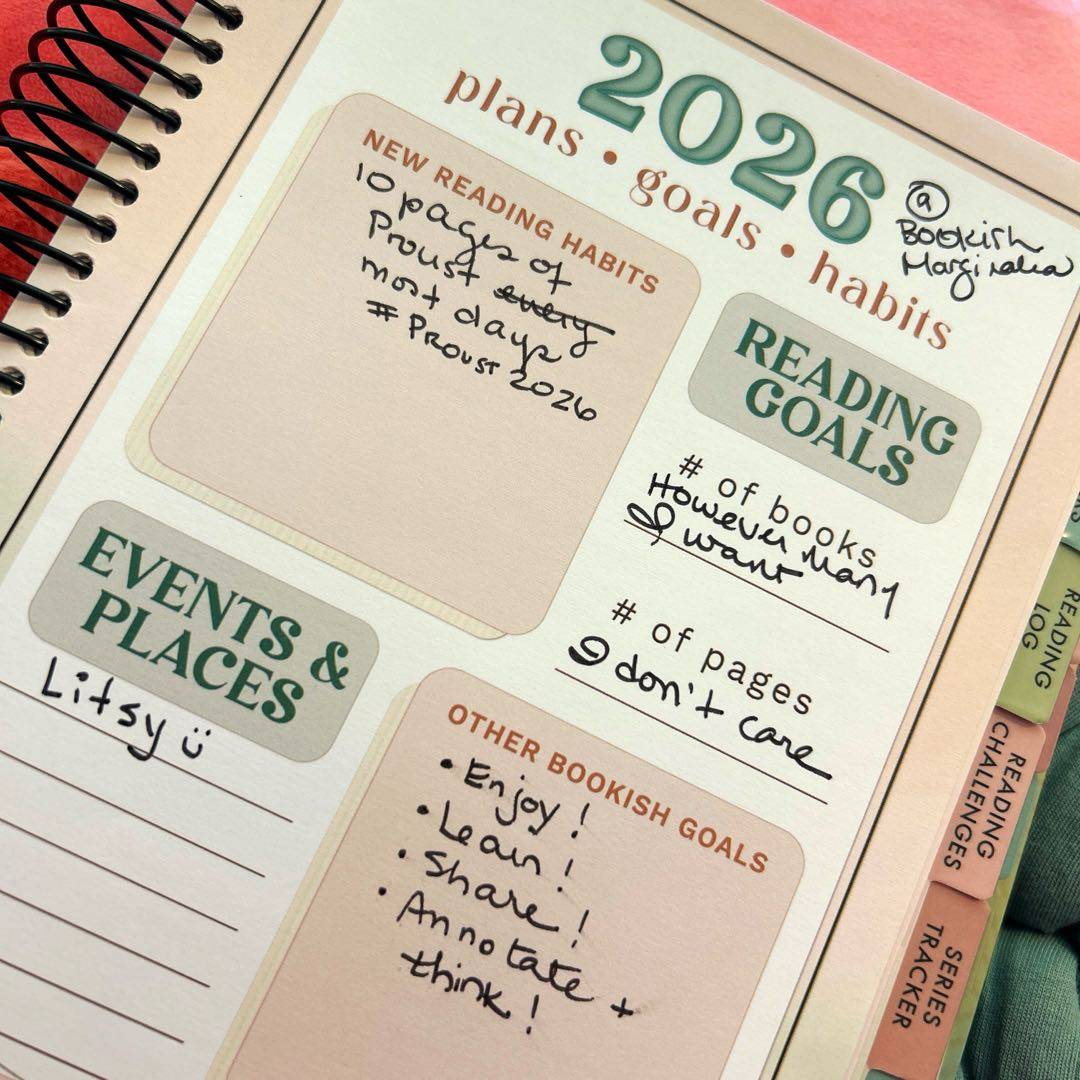 2026
plans • goals • habits
@
Bookish
Marginalia
NEW READING HABITS
10 pages of
Proust every
most days
# Proust 2026
READING
GOALS
# of books
However Many
I want
# of pages
I don't care
EVENTS &
PLACES
Litsy ü
OTHER BOOKISH GOALS
• Enjoy!
• Learn!
• Share!
• Annotate +
think!
READING
LOG
READING
CHALLENGES
SERIES
TRACKER